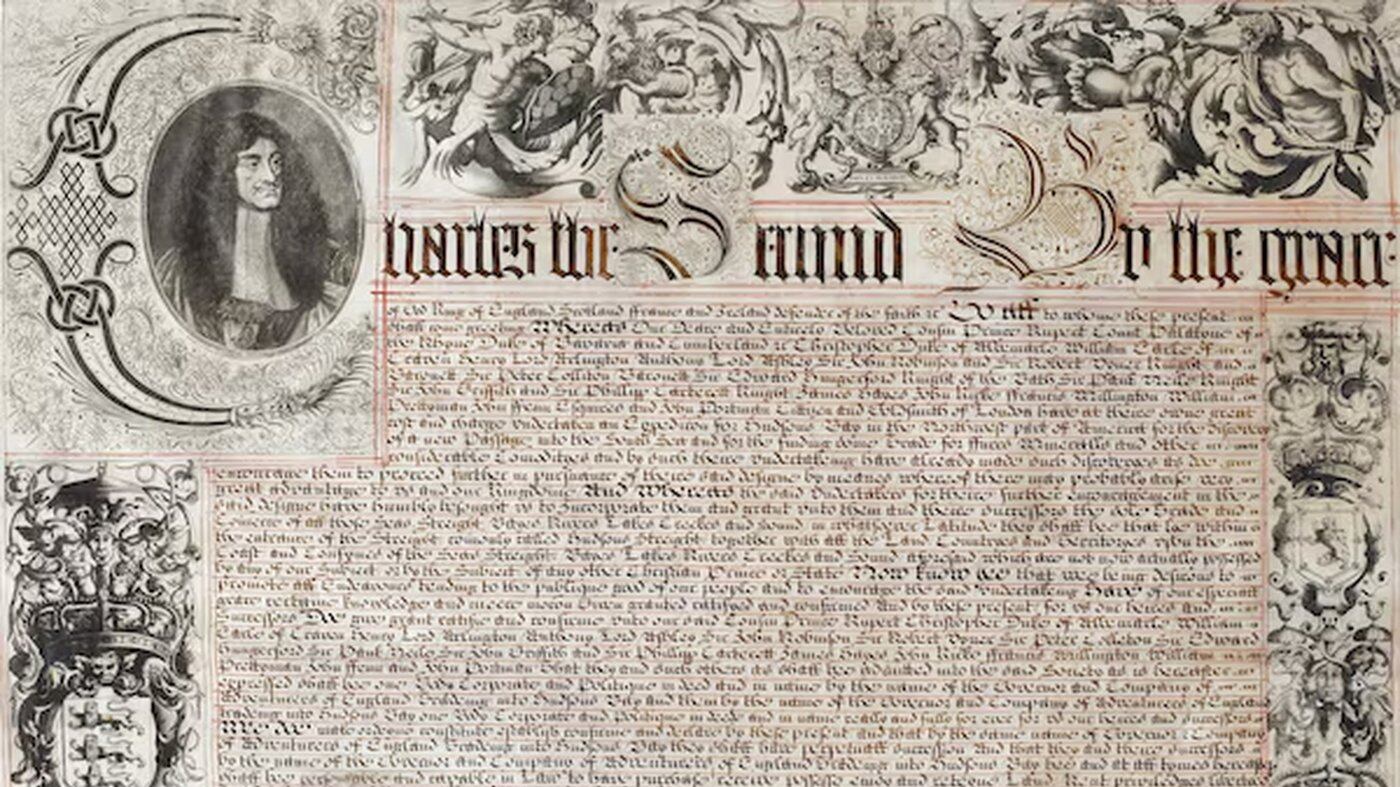 Charles the Second By the grace
of God King of England Scotland ffrance and Ireland defender of the faith &c To all to whome these present
shall come greeting Whereas Our Deare and Entirely Beloved Cousin Prince Rupert Count Palatyne of
the Rhyne Duke of Bavaria and Cumberland &c Christopher Duke of Albemarle William Earle of
Craven Henry Lord Arlington Anthony Lord Ashley Sir John Robinson and Sir Robert Vyner Knight and
Baronett Sir Peter Colliton Baronett Sir Edward Hungerford Knight of the Bath Sir Paul Neile Knight
Sir John Griffith and Sir Phillip Carterett Knight James Hayes John Kirke ffrancis Millington William
Prettyman John ffenn Esquires and John Portman Cittizen and Goldsmith of London have at theire owne great
cost and charge undertaken an Expedicon for Hudsons Bay in the Northwest part of America for the discovery
of a new Passage into the South Sea and for the finding some Trade for ffurrs Mineralls and other
considerable Comodityes and by such theire undertakeing have already made such discoveryes as doe
encourage them to proceed further in pursuance of theire said designe by meanes whereof there may probably arise very
great advantage to us and our Kingdome And Whereas the said Undertakers for theire further encouragement in the
said designe have humbly besought us to Incorporate them and grant unto them and theire successors the sole Trade and
Comerce of all those Seas Streight Bayes Rivers Lakes Creekes and Sound in whatsoever Latitude they shall bee that lye within
the entrance of the Streight comonly called Hudsons Streight together with all the Land Countryes and Territoryes upon the
Coast and Confynes of the Seas Streight Bayes Lakes Rivers Creekes and Sound aforesaid which are not now actually possessed
by any of our Subject or by the Subject of any other Christian Prince or State Now know yee that wee being desirous to
promote all Endeavours tending to the publique good of our people and to encourage the said undertakeing Have of our especiall
grace certayne knowledge and meere mocion Given granted ratifyed and confirmed And by these present for us our heires and
successors Doe give grant ratifie and confirme unto our said Cousin Prince Rupert Christopher Duke of Albemarle William
Earle of Craven Henry Lord Arlington Anthony Lord Ashley Sir John Robinson Sir Robert Vyner Sir Peter Colleton Sir Edward
Hungerford Sir Paul Neile Sir John Griffith and Sir Phillip Carterett James Hayes John Kirke ffrancis Millington William
Prettyman John ffenn and John Portman That they and such others as shall bee admitted into the said Society as is hereafter
expressed shall bee one Body Corporate and Politique in deed and in name by the name of the Governor and Company of
Adventurers of England Tradeing into Hudsons Bay and them by the name of the Governor and Company of Adventurers of England
Tradeing into Hudsons Bay one Body Corporate and Politique in deede and in name really and fully for ever for us our heires and successors
Wee Doe make ordeyne constitute establish confirme and declare by these present and that by the same name of Governor & Company
of Adventurers of England Tradeing into Hudsons Bay they shall have perpetuall succession And that they and theire successors
by the name of the Governor and Company of Adventurers of England Tradeing into Hudsons Bay bee and at all tymes hereafter
shall bee personable and capable in Law to have purchase receive possesse enjoy and reteyne Land Rent priviledges libertyes